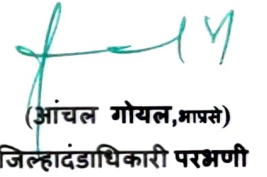 (आंचल गोयल,भाप्रसे)
जिल्हादंडाधिकारी परभणी